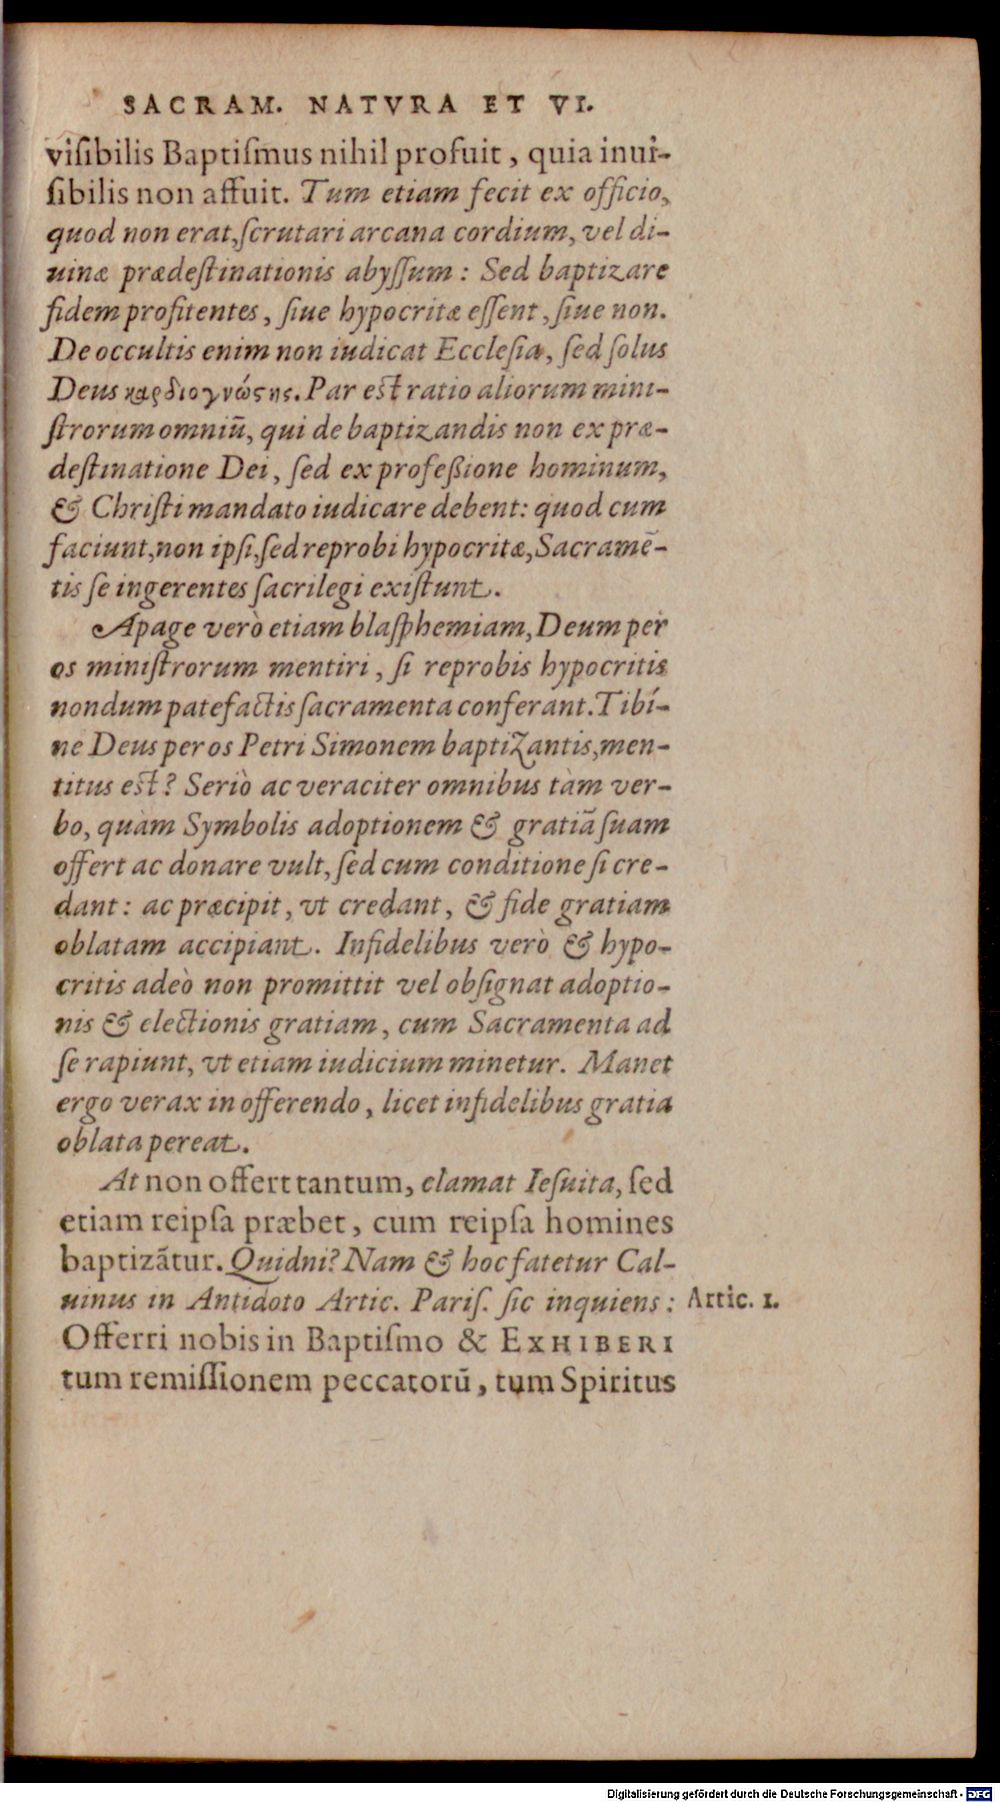 SACRAM. NATVRA ET VI.
viſibilis Baptiſmus nihil profuit, quia inui-
ſibilis non affuit. Tum etiam fecit ex officio,
quod non erat, ſcrutari arcana cordium, vel di-
uinæ prædeſtinationis abyſſum: Sed baptizare
fidem profitentes, ſiue hypocritæ eſſent, ſiue non.
De occultis enim non iudicat Eccleſia, ſed ſolus
Deus καρδιογνώςης. Par est ratio aliorum mini-
ſtrorum omniū, qui de baptizandis non ex præ-
deſtinatione Dei, ſed ex profeßione hominum,
& Chriſti mandato iudicare debent: quod cum
faciunt, non ipſi, ſed reprobi hypocritæ, Sacramē-
tis ſe ingerentes ſacrilegi exiſtunt.
Apage verò etiam blaſphemiam, Deum per
os miniſtrorum mentiri, ſi reprobis hypocritis
nondum patefactis ſacramenta conferant. Tibí-
ne Deus per os Petri Simonem baptizantis, men-
titus est? Seriò ac veraciter omnibus tàm ver-
bo, quàm Symbolis adoptionem & gratiā ſuam
offert ac donare vult, ſed cum conditione ſi cre-
dant: ac præcipit, vt credant, & fide gratiam
oblatam accipiant. Infidelibus verò & hypo-
critis adeò non promittit vel obſignat adoptio-
nis & electionis gratiam, cum Sacramenta ad
ſe rapiunt, vt etiam iudicium minetur. Manet
ergo verax in offerendo, licet infidelibus gratia
oblata pereat.
At non offert tantum, clamat Ieſuita, ſed
etiam reipſa præbet, cum reipſa homines
baptizātur. Quidni? Nam & hoc fatetur Cal-
uinus in Antidoto Artic. Pariſ. ſic inquiens: Artic. 1.
Offerri nobis in Baptiſmo & EXHIBERI
tum remiſſionem peccatorū, tum Spiritus
Digitalisierung gefördert durch die Deutsche Forschungsgemeinschaft - DFG